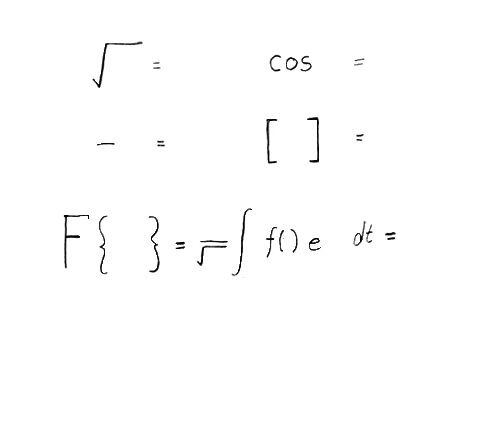 √ = cos =
— = [ ] =
F{ } = —/√ ∫ f() e dt =